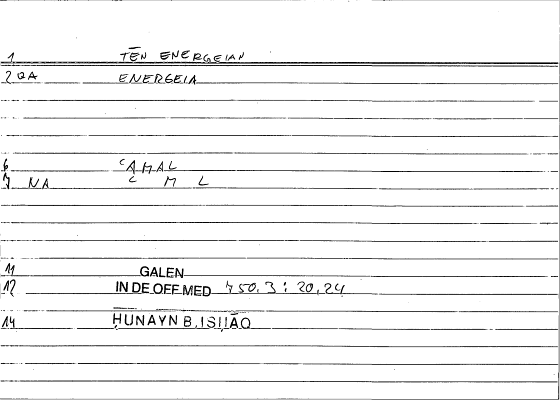 1 TĒN ENERGEIAN
2 QA ENERGEIA
6 ʿAMAL
7 NA ʿ M L
11 GALEN
12 IN DE OFF MED 750.3 : 20,24
14 ḤUNAYN B. ISḤĀQ